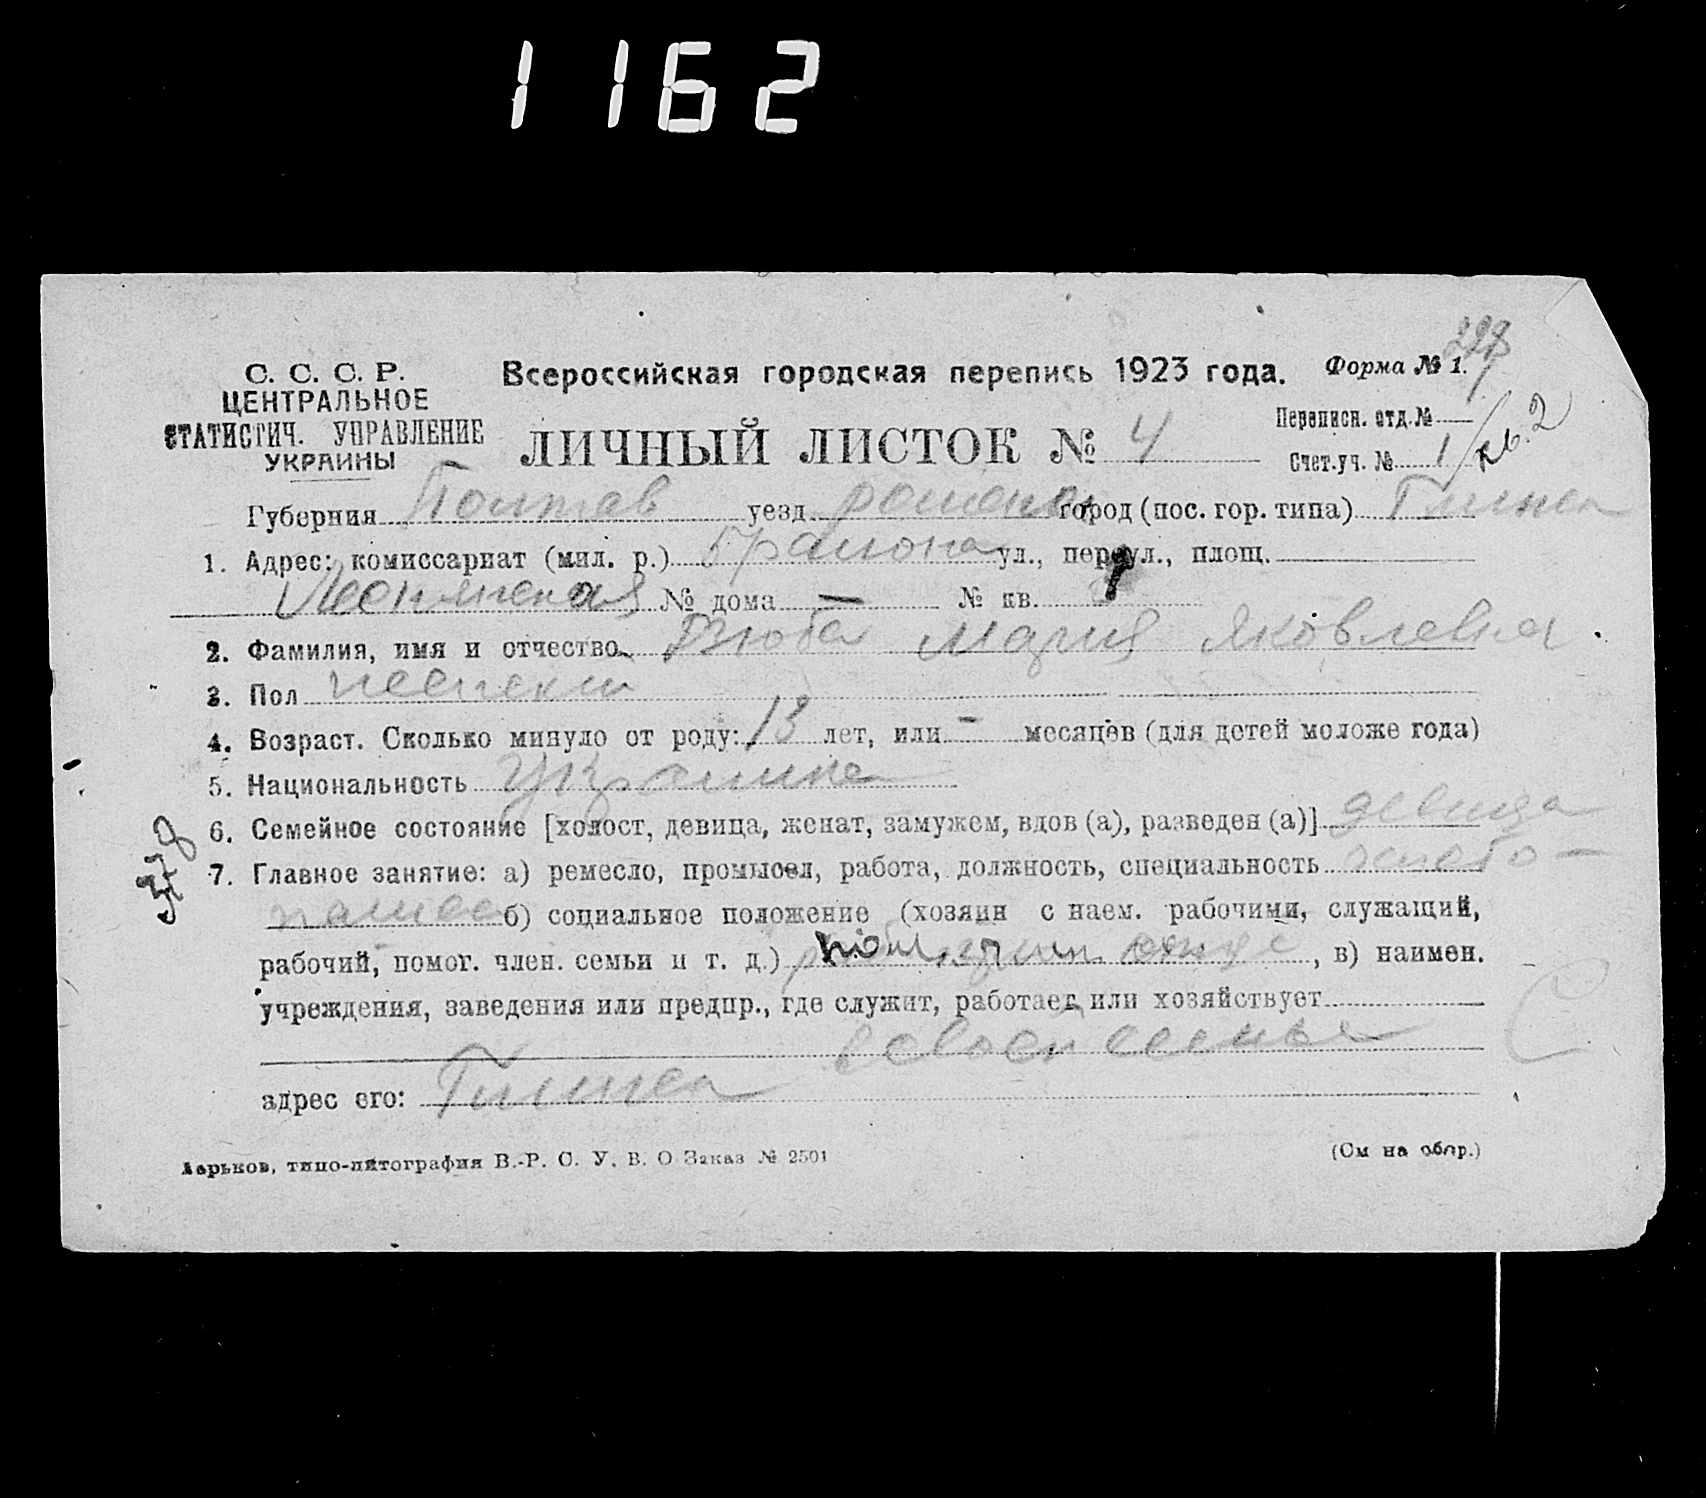 1162
С. С. С. Р.
ЦЕНТРАЛЬНОЕ
СТАТИСТИЧ. УПРАВЛЕНИЕ
УКРАИНЫ
Всероссийская городская перепись 1923 года.
Форма № 1.
ЛИЧНЫЙ ЛИСТОК № 4
Переписн. отд. №
Счет. уч. № 1 / кв. 2
Губерния Полтав уезд город (пос. гор. типа) Глинск
1. Адрес: комиссариат (мил. р.) ул., переул., площ.
№ дома — № кв.
2. Фамилия, имя и отчество Дзюба Мария Яковлевна
3. Пол женский
4. Возраст. Сколько минуло от роду: 13 лет, или - месяцев (для детей моложе года)
5. Национальность Украинка
6. Семейное состояние [холост, девица, женат, замужем, вдов (а), разведен (а)] девица
7. Главное занятие: а) ремесло, промысел, работа, должность, специальность хлебо-
пашес б) социальное положение (хозяин с наем. рабочими, служащий,
рабочий, помог. член. семьи и т. д.) отцу, в) наимен.
учреждения, заведения или предпр., где служит, работает или хозяйствует
в своей семье
адрес его: Глинск
Харьков, типо-литография В.-Р. С. У. В. О Заказ № 2501
(См на обор.)